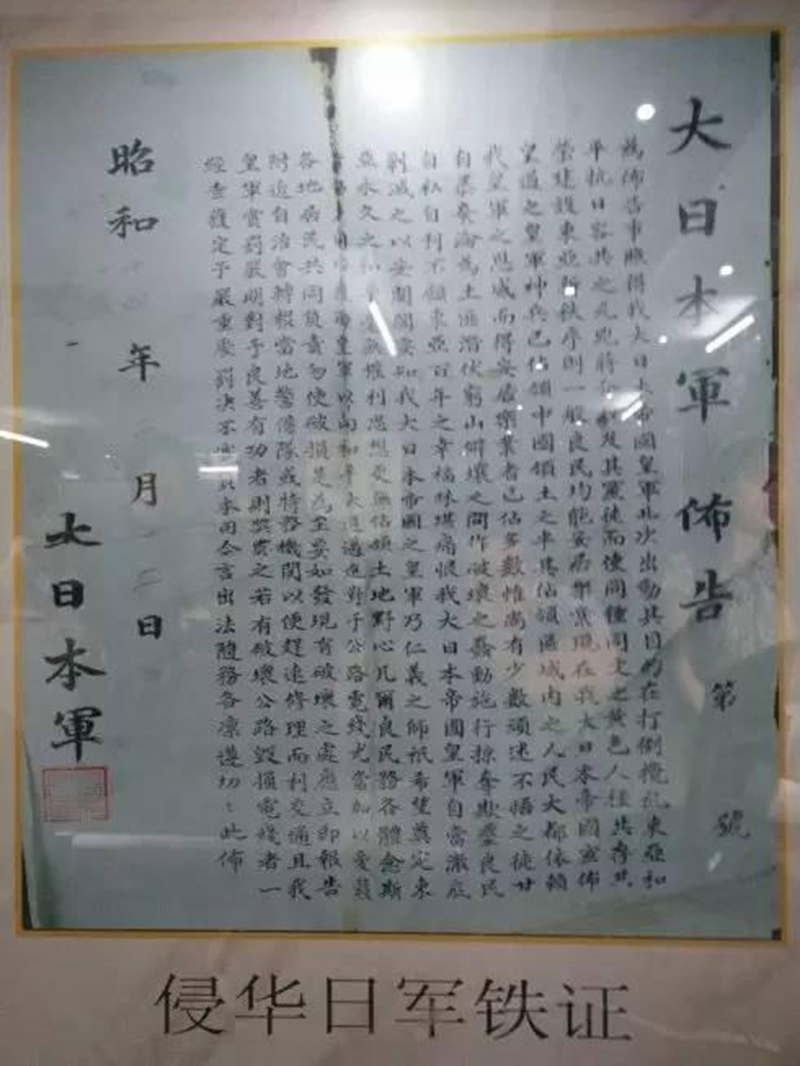 大日本軍佈告 第 號
為佈告事照得我大日本帝國皇軍此次出動其目的在打倒攪乱東亞和
平抗日容共之 將 及其黨徒而使同種同文之黄色人種共存共
榮建設東亞新秩序則一般良民均能安居樂業現在我大日本帝國宣佈
皇道之皇軍神兵已佔領中國領土之半其佔領區域内之人民大都依賴
我皇軍之恩威而得安居樂業者已佔多數惟尚有少數頑迷不悟之徒甘
自暴棄淪為土匪潛伏窮山僻壤之間作破壞之蠢動施行掠奪欺壓良民
自私自利不顧東亞百年之幸福殊堪痛恨我大日本帝國皇軍自當澈底
剿滅之以安閭閻要知我大日本帝國之皇軍乃仁義之師祇希望奠定東
亞永久之和平 無權利思想更無佔領土地野心凡爾良民務各體念斯
皇軍以向和平大道邁進對于公路電线尤當加以愛護
各地居民共同負責勿使破損是為至要如發現有破壞之處應立即報告
附近自治會轉報當地警備隊或特務機関以便趕速修理而利交通且我
皇軍賞罰嚴明對于良善有功者則獎賞之若有破壞公路毀損電綫者一
經查獲定予嚴重處罰决不寬 本 令言出法隨務各凛遵切々此佈
昭和十四年 月 日
大日本軍
侵华日军铁证